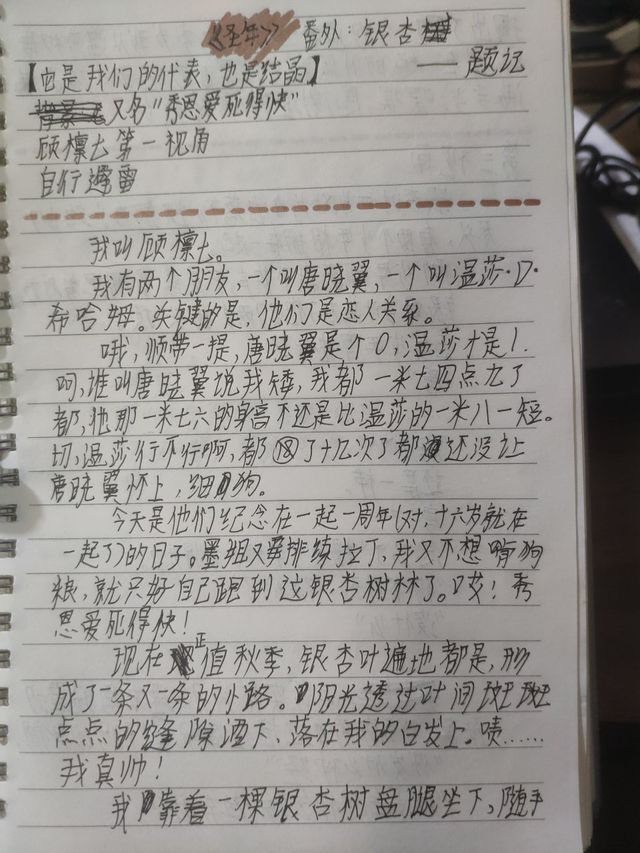 《圣年》 番外：银杏树
【它是我们的代表，也是结晶】 ——题记
又名“秀恩爱死得快”
顾檩士第一视角
自行避雷
我叫顾檩士。
我有两个朋友，一个叫唐晓翼，一个叫温莎·D·
希哈姆。关键的是，他们是恋人关系。
哦，顺带一提，唐晓翼是个0，温莎才是1.
呵，谁叫唐晓翼说我矮，我都一米七四点九了
都，他那一米七六的身高不还是比温莎的一米八一短。
切，温莎行不行啊，都⑱了十几次了都还没让
唐晓翼怀上，细狗。
今天是他们纪念在一起一周年（对，十六岁就在
一起了）的日子。墨组又舞排练拉丁，我又不想啃狗
粮，就只好自己跑到这银杏树林了。哎！秀
恩爱死得快！
现在正值秋季，银杏叶遍地都是，形
成了一条又一条的小路。阳光透过叶间斑斑
点点的缝隙洒下，落在我的白发上。啧……
我真帅！
我靠着一棵银杏树盘腿坐下，随手